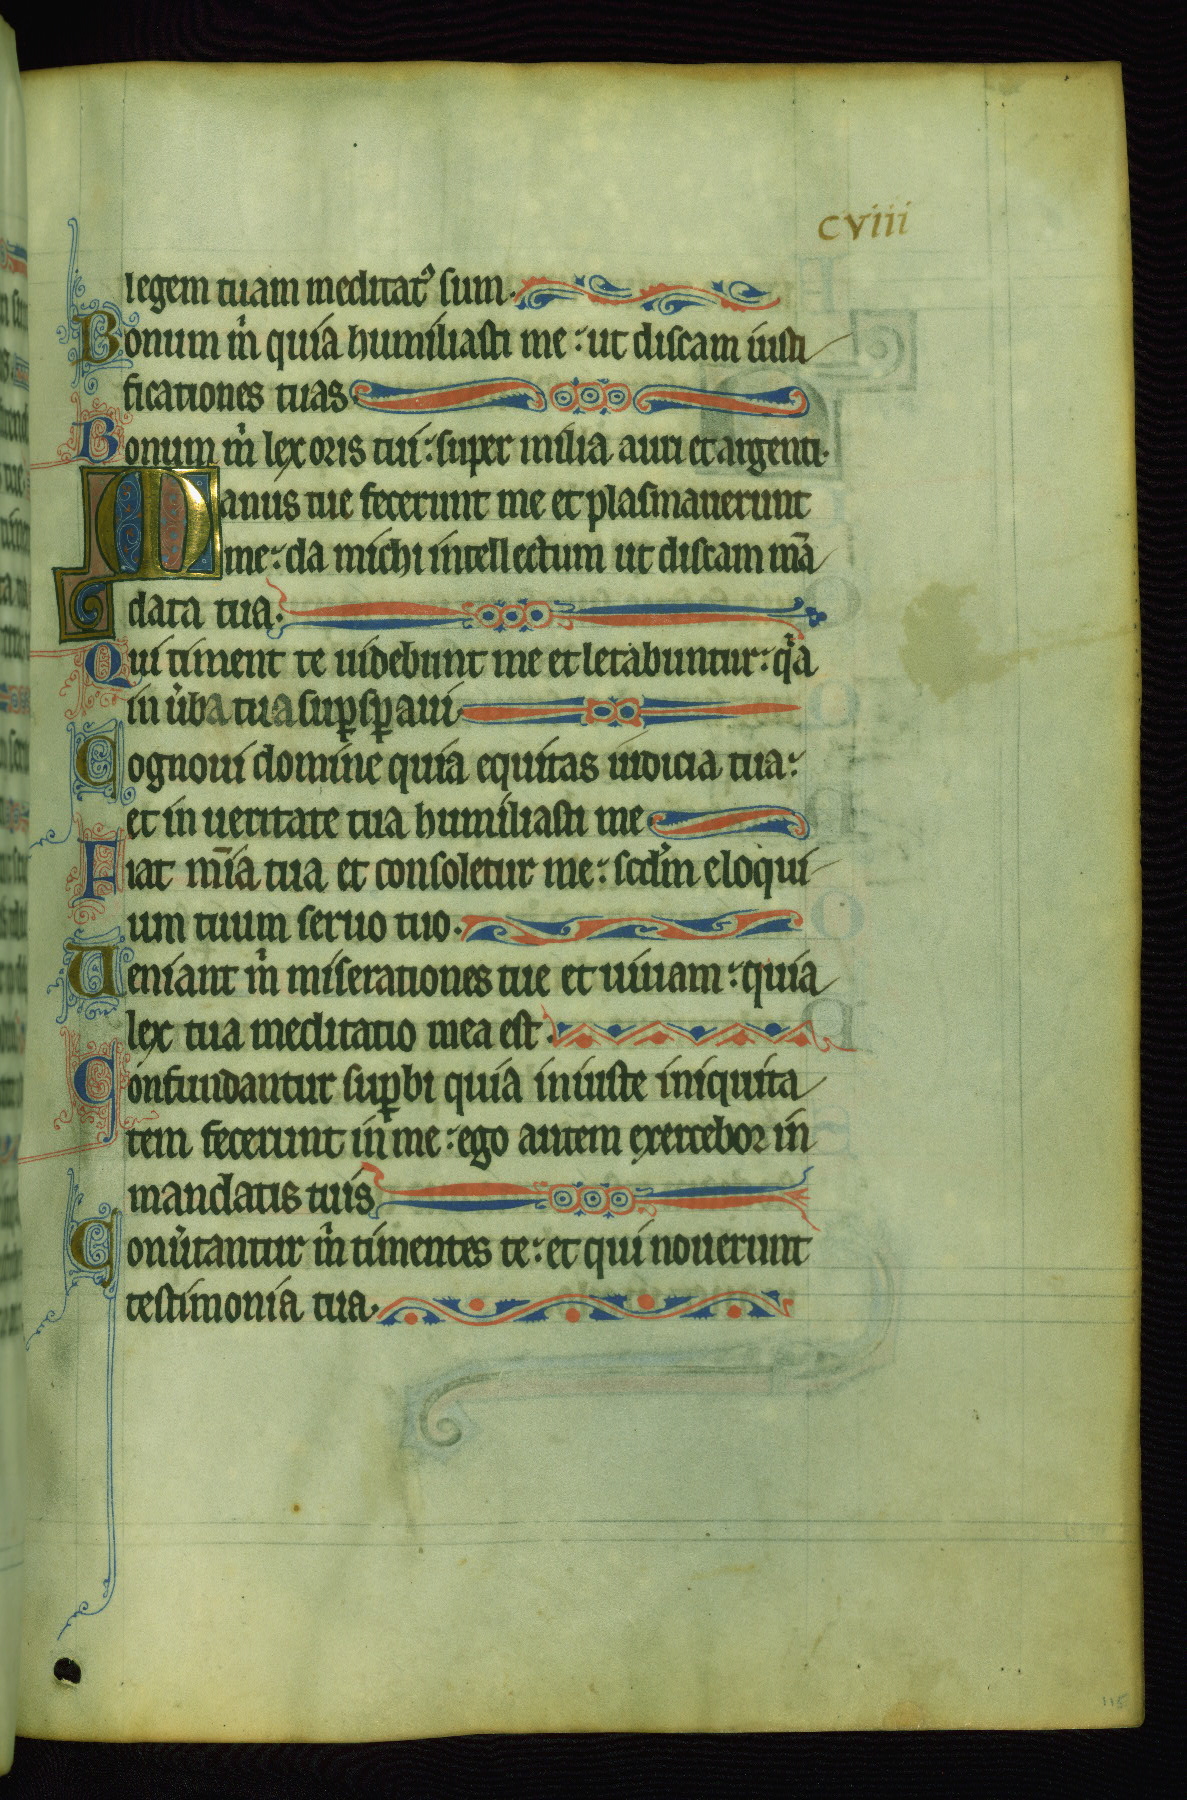 cviii
legem tuam meditatꝰ sum.
Bonum m̉ quia humiliasti me : ut discam iusti
ficationes tuas
Bonum m̉ lex oris tui : super milia auri et argenti.
Manus tue fecerunt me et plasmauerunt
me : da michi intellectum ut discam mā
data tua.
Qui timent te uidebunt me et letabuntur : qͥa
in ũba tua suꝑsꝑaui.
Cognoui domine quia equitas iudicia tua :
et in ueritate tua humiliasti me
Fiat m̄ia tua et consoletur me : scd̉m eloqui
um tuum seruo tuo.
Ueniant m̉ miserationes tue et uiuam : quia
lex tua meditatio mea est.
Confundantur suꝑbi quia iniuste iniquita
tem fecerunt in me : ego autem exercebor in
mandatis tuis
Conũtantur m̉ timentes te : et qui nouerunt
testimonia tua.
115